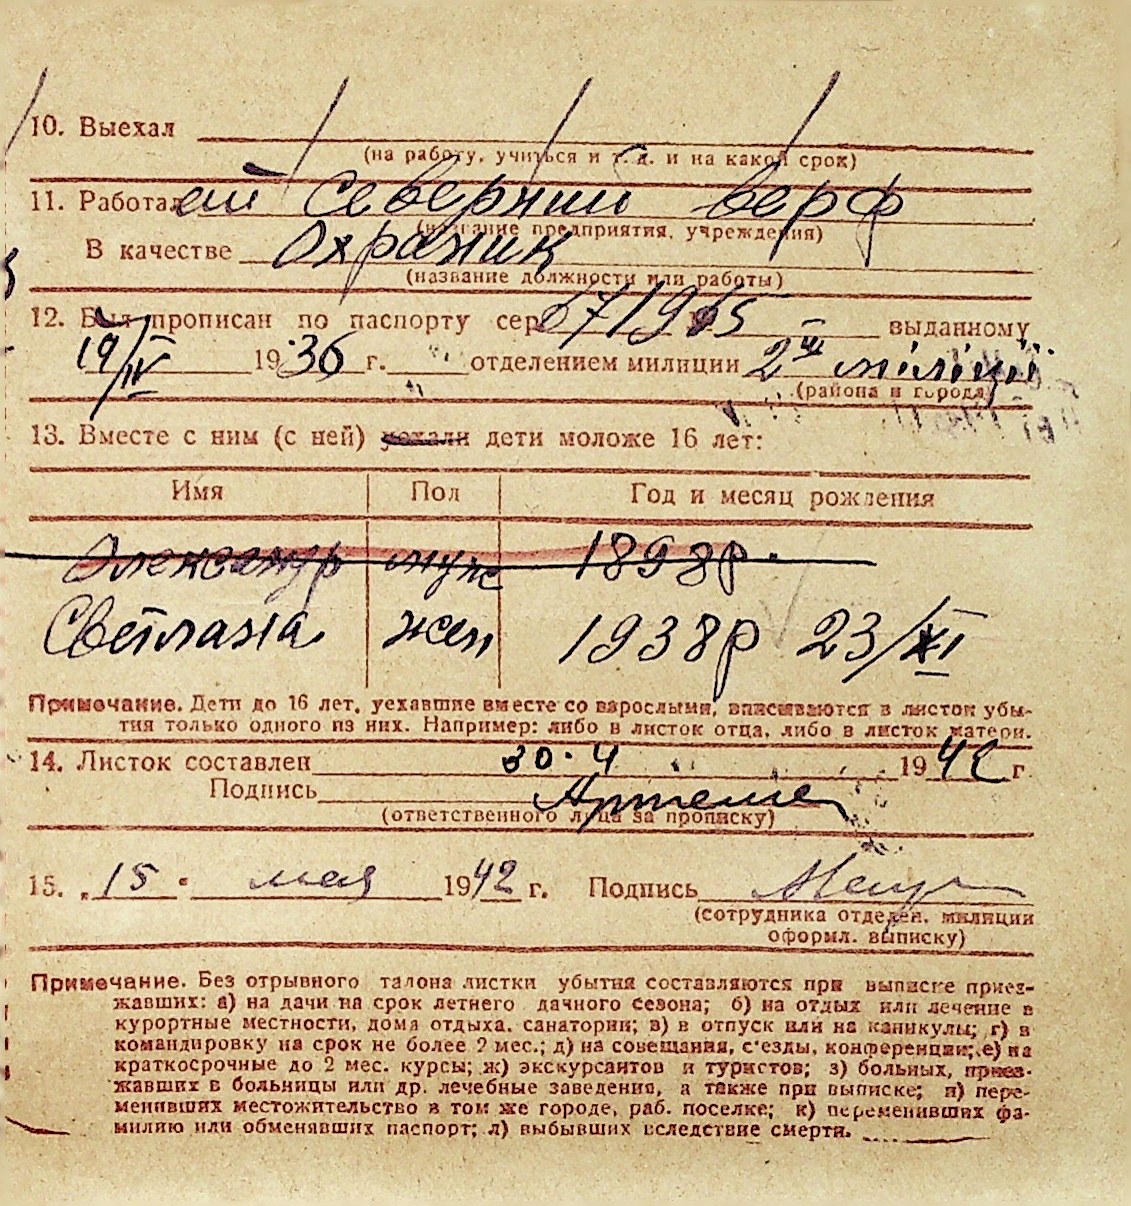 10. Выехал
(на работу, учиться и т. д. и на какой срок)
11. Работал ей Северний верф
(название предприятия, учреждения)
В качестве охраник
(название должности или работы)
12. Был прописан по паспорту сер. выданному
19/IV 1936 г. отделением милиции 2ш мiлiцiї
(района и города)
13. Вместе с ним (с ней) уехали дети моложе 16 лет:
Имя Пол Год и месяц рождения
Александр муж 1898р.
Светлана жен 1938р 23/XI
Примечание. Дети до 16 лет, уехавшие вместе со взрослыми, вписываются в листок убы-
тия только одного из них. Например: либо в листок отца, либо в листок матери.
14. Листок составлен 30.4 1942 г.
Подпись
(ответственного лица за прописку)
15. „15" мая 1942 г. Подпись
(сотрудника отделен. милиции
оформл. выписку)
Примечание. Без отрывного талона листки убытия составляются при выписке приез-
жавших: а) на дачи на срок летнего дачного сезона; б) на отдых или лечение в
курортные местности, дома отдыха, санатории; в) в отпуск или на каникулы; г) в
командировку на срок не более 2 мес.; д) на совещания, с'езды, конференции; е) на
краткосрочные до 2 мес. курсы; ж) экскурсантов и туристов; з) больных, приез-
жавших в больницы или др. лечебные заведения, а также при выписке; и) пере-
менивших местожительство в том же городе, раб. поселке; к) переменивших фа-
милию или обменявших паспорт; л) выбывших вследствие смерти.